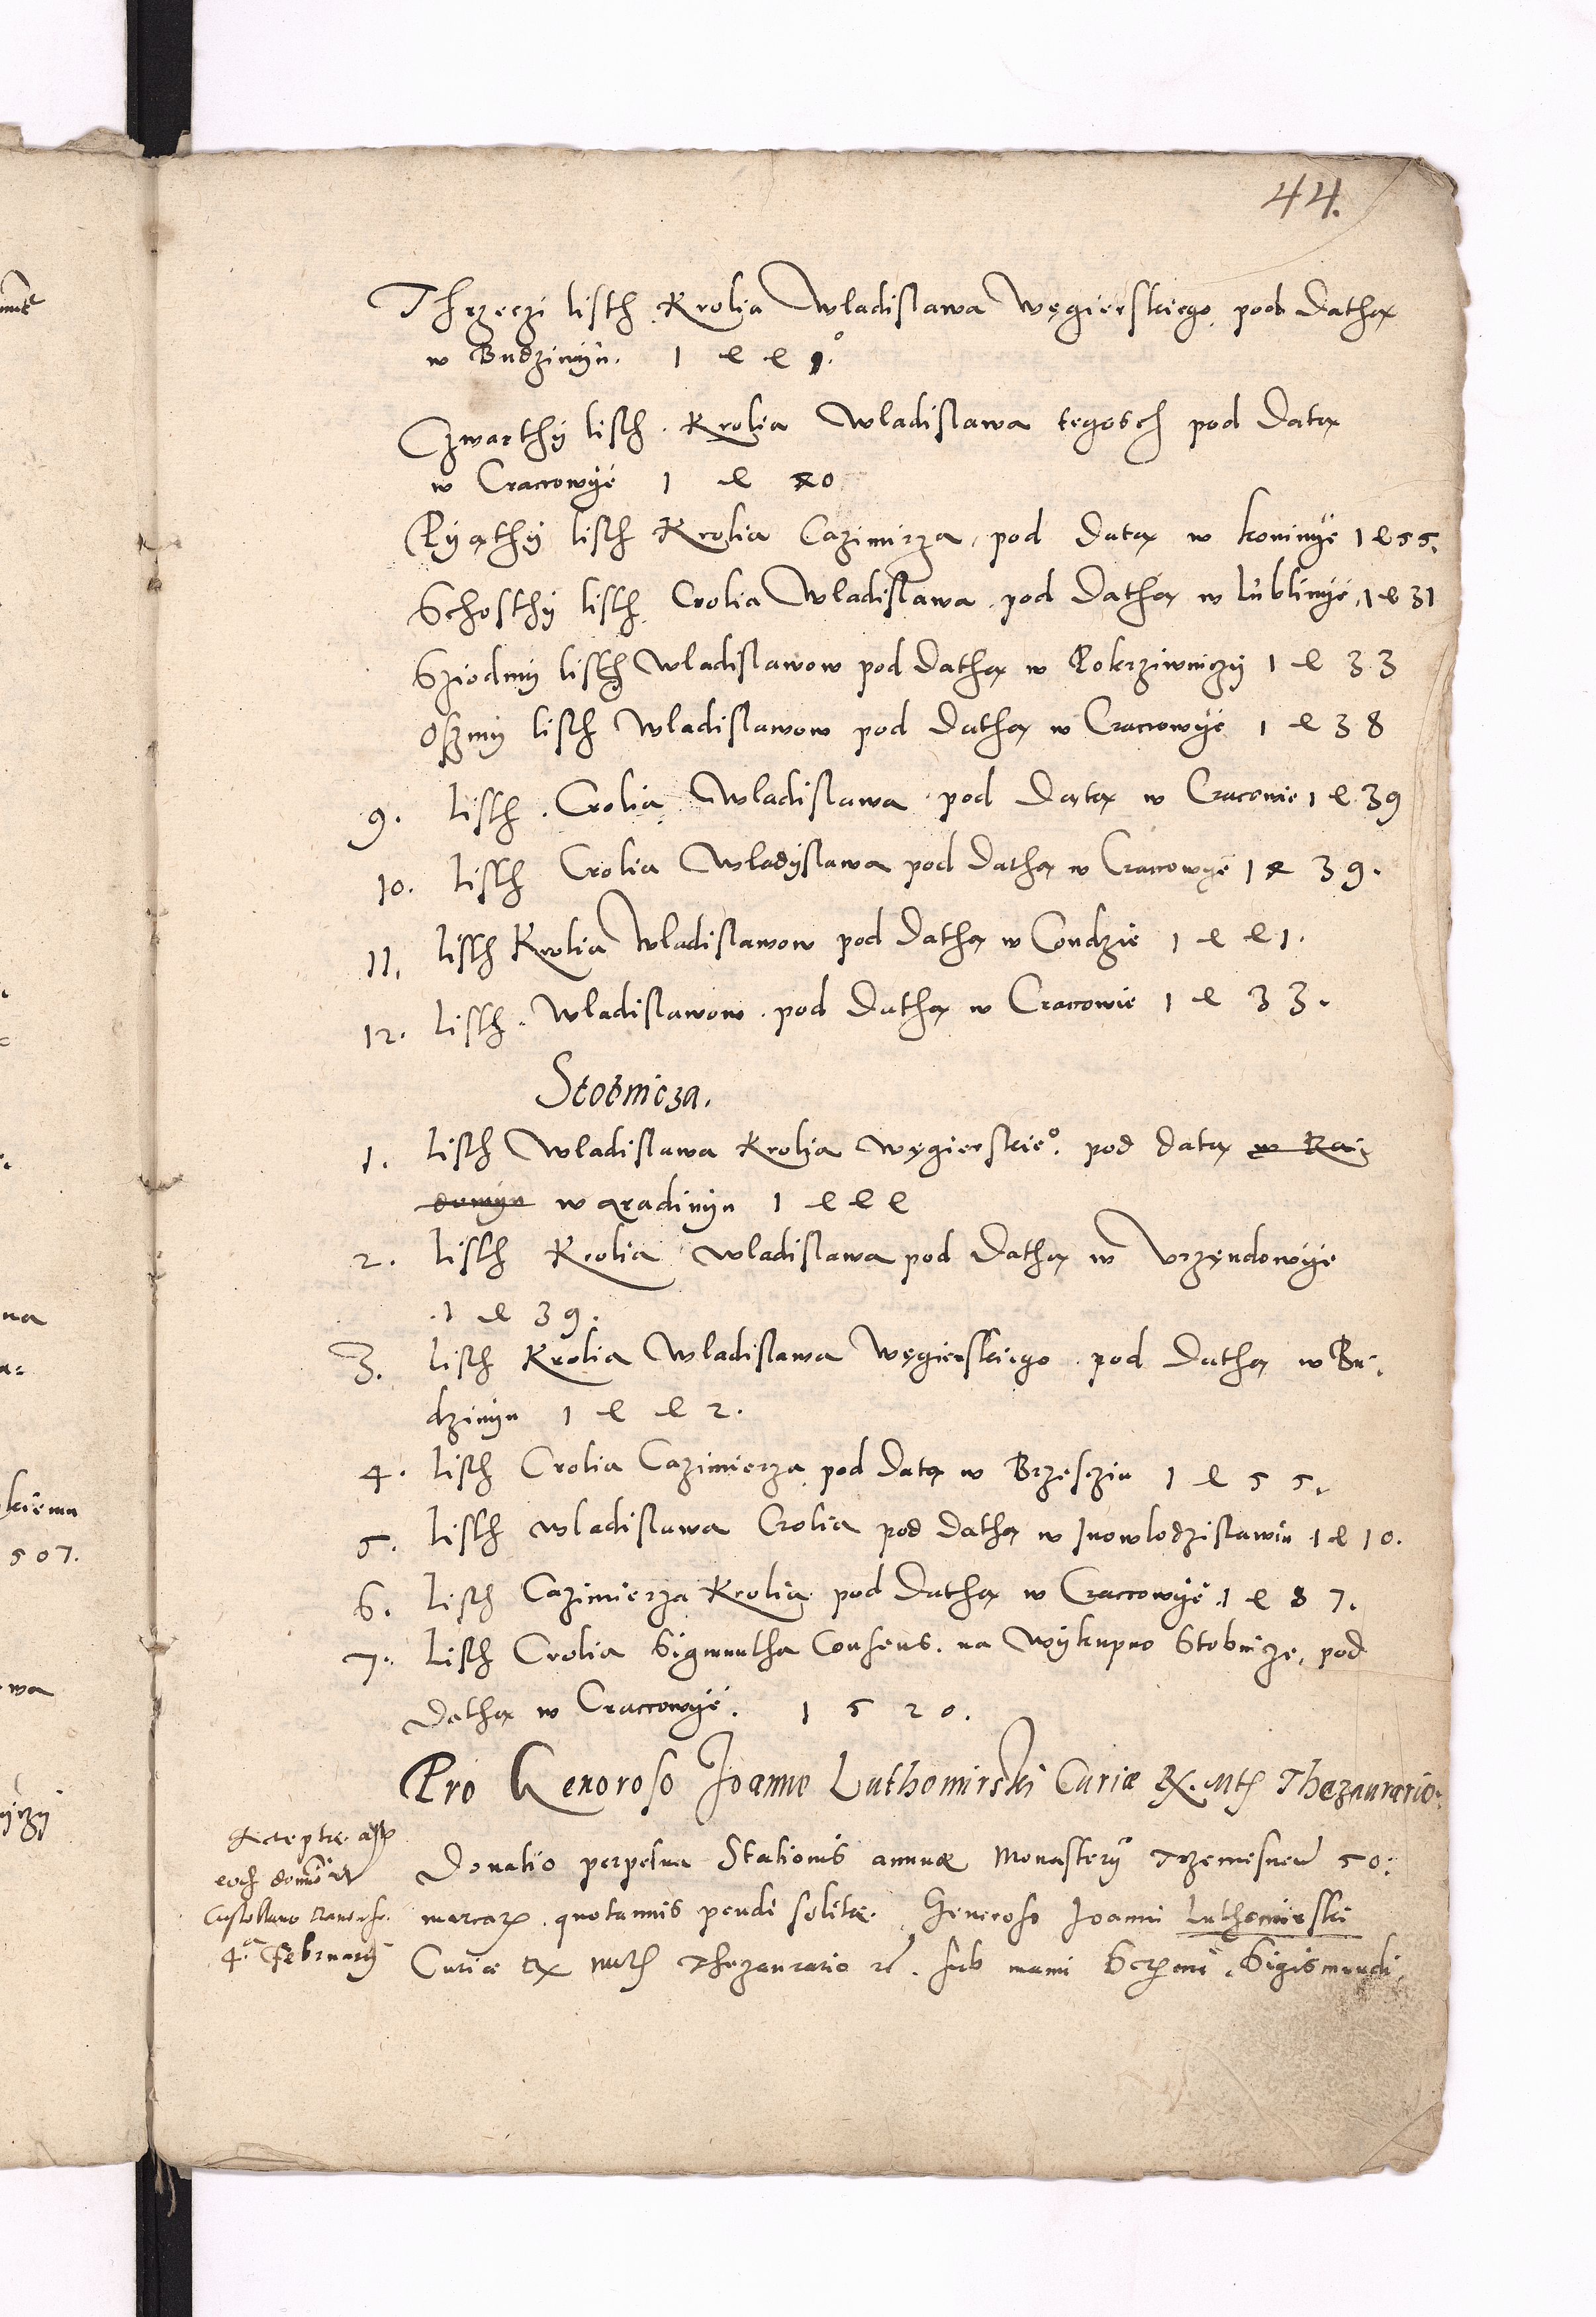 44.
Thrzeczi listh Krolia Wladislawa Węgierskiego pod Dathą
w Budzinyu. 1 4 4 1.°
Czwarthy lisch. Krolia Wladislawa tegosch pod Datą
w Craccowye 1 4 20
Pyąthy lisch Krolia Cazimirza, pod Datą w koninye 1 4 5 5.
Schosthy listh Crolia Wladislawa pod Dathą w Lublinye, 1 4 31
Sziodmy listh Wladislawow pod Dathą w Pokrziwniczy 1 4 3 3
Oszmy lisch Wladislawow pod Dathą w Craccowye 1 4 3 8
9. Listh. Crolia Wladislawa pod Datą w Cracowie 1 4 39
10. Listh Crolia Wladyslawa pod Dathą w Craccowye 1 4 3 9.
11. listh Krolia Wladislawow pod Dathą w Condzie 1 4 4 1.
12. Listh. Wladislawow. pod Dathą w Craccowie 1 4 3 3.
Stobnicza.
1. lisch Wladislawa Krolia Węgierskie°. pod datą w Ra
domyu w Gradinyu 1 4 4 4
2. Listh Krolia Wladislawa pod Dathą w Vrzędowye
.1 4 3 9.
3. lisch Krolia Wladislawa Węgierskiego. pod Dathą w Bu.
dzinyu 1 4 4 2.
4. lisch Crolia Cazimierza pod Datą w Brzesciu 1 4 5 5.
5. Listh Wladislawa Crolia pod Dathą w Inowlodzislawiu 1 4 10.
6. Lisch Cazimierza Krolia pod Dathą w Craccowye .1 4 8 7.
7. Lisch Crolia Sigmuntha Consens. na Wykupno Stobnicze, pod
Dathą w Craccowye. 1 5 2 0.
Pro Generoso Joanne Luthomirski Curiæ Rx. Mts Thezaurario.
Receptæ
eosdem
Castellano Raven̄.
4.ta Februarij
Donatio perpetua Stationis annuæ Monasterij Trzemesnen̄ 50.
marcarz quotannis pendi solitæ. Generoso Joanni Luthomirski
Curiæ Rx Mts Thezaurario sub manu Sigismundi